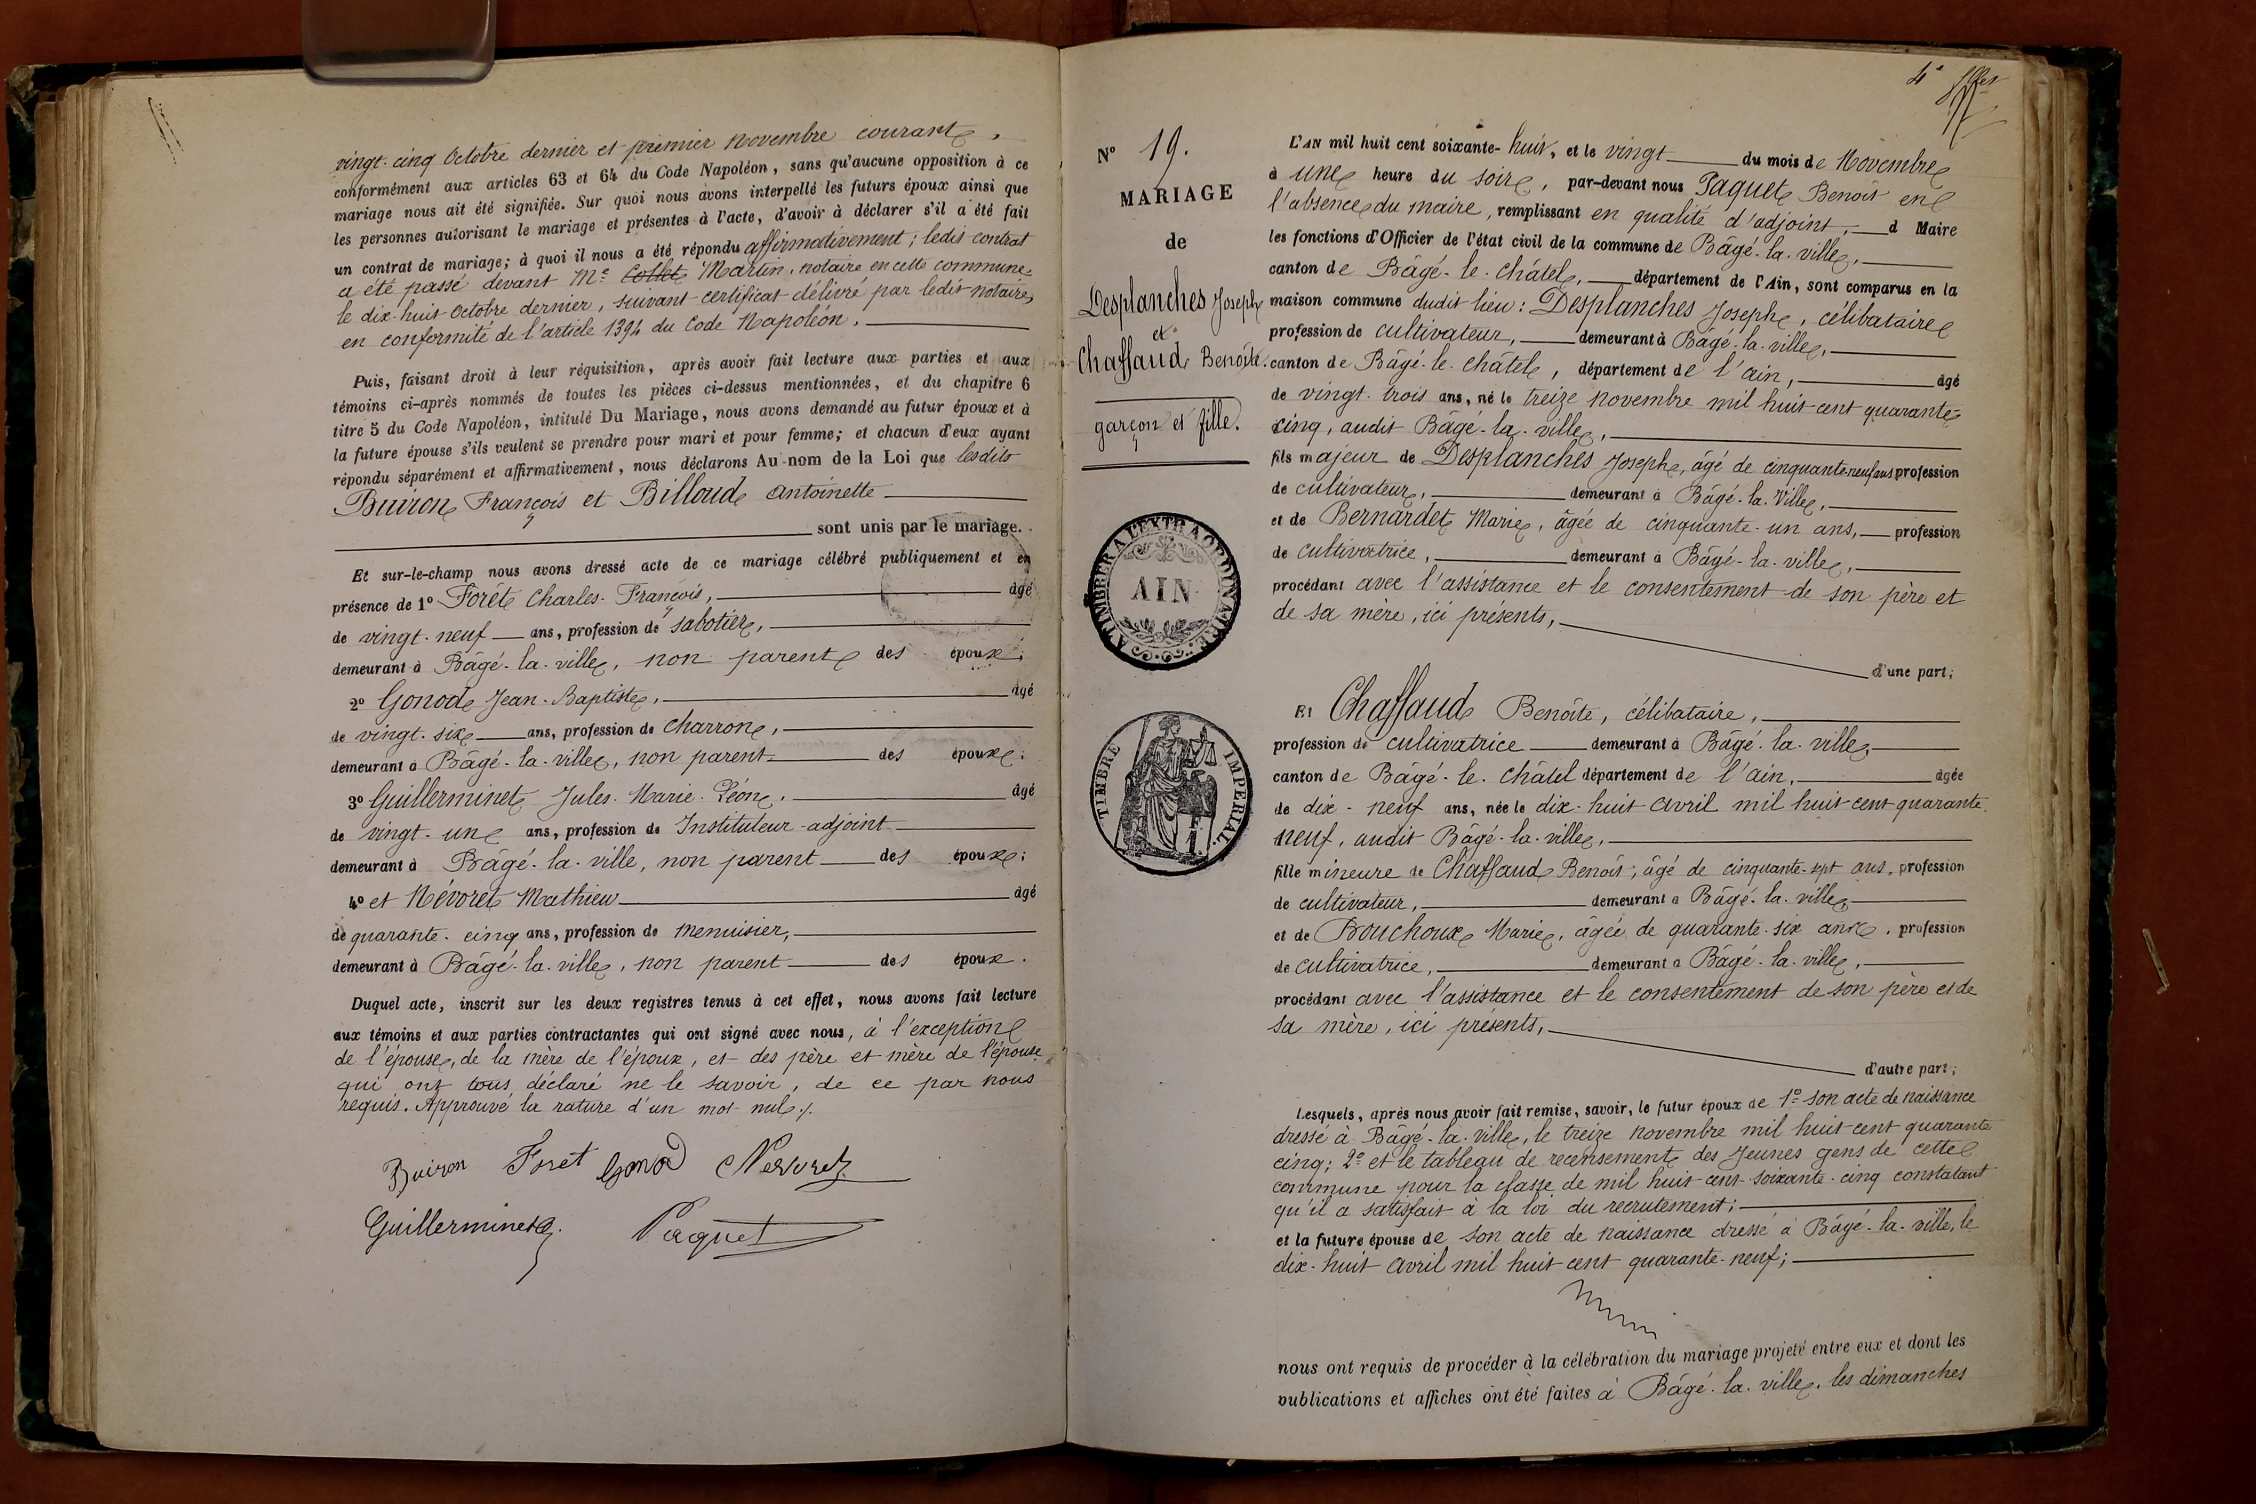 vingt-cinq Octobre dernier et premier Novembre courant,
conformément aux articles 63 et 64 du Code Napoléon, sans qu'aucune opposition à ce
mariage nous ait été signifiée. Sur quoi nous avons interpellé les futurs époux ainsi que
les personnes autorisant le mariage et présentes à l'acte, d'avoir à déclarer s'il a été fait
un contrat de mariage; à quoi il nous a été répondu affirmativement; ledit contrat
a été passé devant Me Collet Martin, notaire en cette commune
le dix-huit Octobre dernier, suivant certificat délivré par ledit notaire,
en conformité de l'article 1394 du Code Napoléon.
Puis, faisant droit à leur réquisition, après avoir fait lecture aux parties et aux
témoins ci-après nommés de toutes les pièces ci-dessus mentionnées, et du chapitre 6
titre 5 du Code Napoléon, intitulé Du Mariage, nous avons demandé au futur époux et à
la future épouse s'ils veulent se prendre pour mari et pour femme; et chacun d'eux ayant
répondu séparément et affirmativement, nous déclarons Au nom de la Loi que lesdits
Buiron François et Billoud Antoinette
sont unis par le mariage.
Et sur-le-champ nous avons dressé acte de ce mariage célébré publiquement et en
présence de 1º Forêt Charles-François, âgé
de vingt-neuf ans, profession de sabotier,
demeurant à Bâgé-la-ville, non parent des époux;
2º Gonod Jean-Baptiste, âgé
de vingt-six ans, profession de charron,
demeurant à Bâgé-la-ville, non parent des époux;
3º Guillerminet Jules-Marie-Léon, âgé
de vingt-un ans, profession de Instituteur-adjoint
demeurant à Bâgé-la-ville, non parent des époux;
4º et Névoret Mathieu âgé
de quarante-cinq ans, profession de menuisier,
demeurant à Bâgé-la-ville, non parent des époux.
Duquel acte, inscrit sur les deux registres tenus à cet effet, nous avons fait lecture
aux témoins et aux parties contractantes qui ont signé avec nous, à l'exception
de l'épouse, de la mère de l'époux, et des père et mère de l'épouse
qui ont tous déclaré ne le savoir, de ce par nous
requis. Approuvé la rature d'un mot nul./.
Buiron Foret Gonod Nevoret
Guillerminet Paquet
4e
Nº 19.
MARIAGE
de
Desplanches Joseph
et
Chaffaud Benoîte.
garçon et fille.
A TIMBRER A L'EXTRAORDINAIRE
AIN
TIMBRE IMPERIAL.
L'AN mil huit cent soixante-huit, et le vingt du mois de Novembre
à une heure du soir, par-devant nous Paquet Benoît en
l'absence du maire, remplissant en qualité d'adjoint, d Maire
les fonctions d'Officier de l'état civil de la commune de Bâgé-la-ville,
canton de Bâgé-le-châtel, département de l'Ain, sont comparus en la
maison commune dudit lieu: Desplanches Joseph, célibataire
profession de cultivateur, demeurant à Bâgé-la-ville,
canton de Bâgé-le-châtel, département de l'ain, âgé
de vingt-trois ans, né le treize novembre mil huit cent quarante-
cinq, audit Bâgé-la-ville,
fils majeur de Desplanches Joseph, âgé de cinquante-neuf ans profession
de cultivateur, demeurant à Bâgé-la-Ville,
et de Bernardet Marie, âgée de cinquante-un ans, profession
de cultivatrice, demeurant à Bâgé-la-ville,
procédant avec l'assistance et le consentement de son père et
de sa mère, ici présents,
d'une part;
Et Chaffaud Benoîte, célibataire,
profession de cultivatrice demeurant à Bâgé-la-ville,
canton de Bâgé-le-châtel département de l'ain, âgée
de dix-neuf ans, née le dix-huit avril mil huit cent quarante-
neuf, audit Bâgé-la-ville,
fille mineure de Chaffaud Benoît, âgé de cinquante-sept ans, profession
de cultivateur, demeurant à Bâgé-la-ville,
et de Bouchoux Marie, âgée de quarante-six ans, profession
de cultivatrice, demeurant à Bâgé-la-ville,
procédant avec l'assistance et le consentement de son père et de
sa mère, ici présents,
d'autre part;
Lesquels, après nous avoir fait remise, savoir, le futur époux de 1º son acte de naissance
dressé à Bâgé-la-ville, le treize novembre mil huit cent quarante
cinq; 2º et le tableau de recensement des Jeunes gens de cette
commune pour la classe de mil huit cent soixante-cinq constatant
qu'il a satisfait à la loi du recrutement;
et la future épouse de son acte de naissance dressé à Bâgé-la-ville, le
dix-huit avril mil huit cent quarante-neuf;
nous ont requis de procéder à la célébration du mariage projeté entre eux et dont les
publications et affiches ont été faites à Bâgé-la-ville, les dimanches